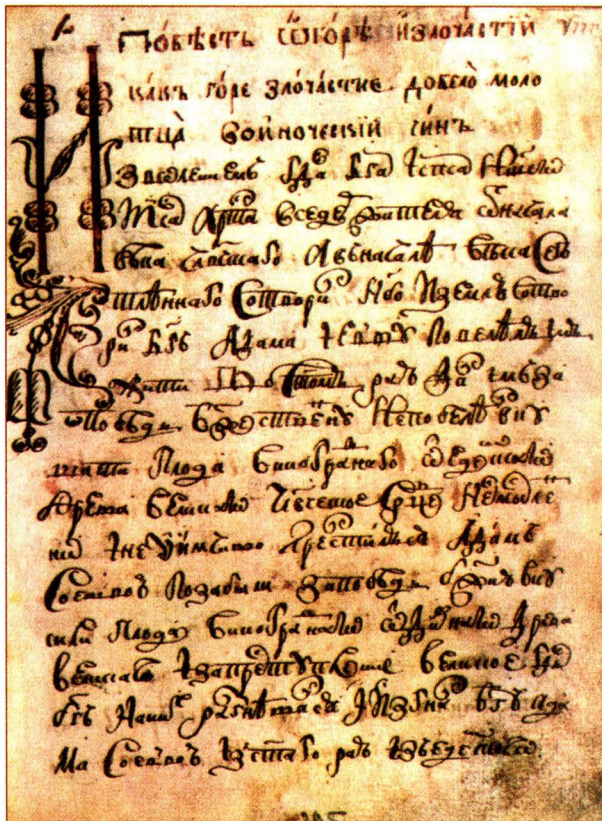 Повѣсть ѿ горѣ и злочастіи
какъ горе злочастие довело моло
тца во иноческій чинъ
Изволениемъ гда бга и спса нашего
Іса Хрта вседержителя ѿ начала
вѣка члческаго А въ началѣ вѣка сего
тлѣннаго Сотвори нбо и землю Сотво
ри бгъ Адама и Евву Повелѣлъ имъ
жити во стомъ раю да имъ за
повѣдь бжественну Не повелѣ вку
шати плода виноградного ѿ едемского
древа великого Члческое срце несмысле
но и неуимчиво престилься Адамъ
Со Еввою Позабыли заповѣдь бжию вку
сили плода виноградного ѿ дивного древа
великаго и за преступление великое гдь
бгъ на ни разгнѣвался И изгна бгъ Ада
ма Со Еввою из стаго раю из едемского